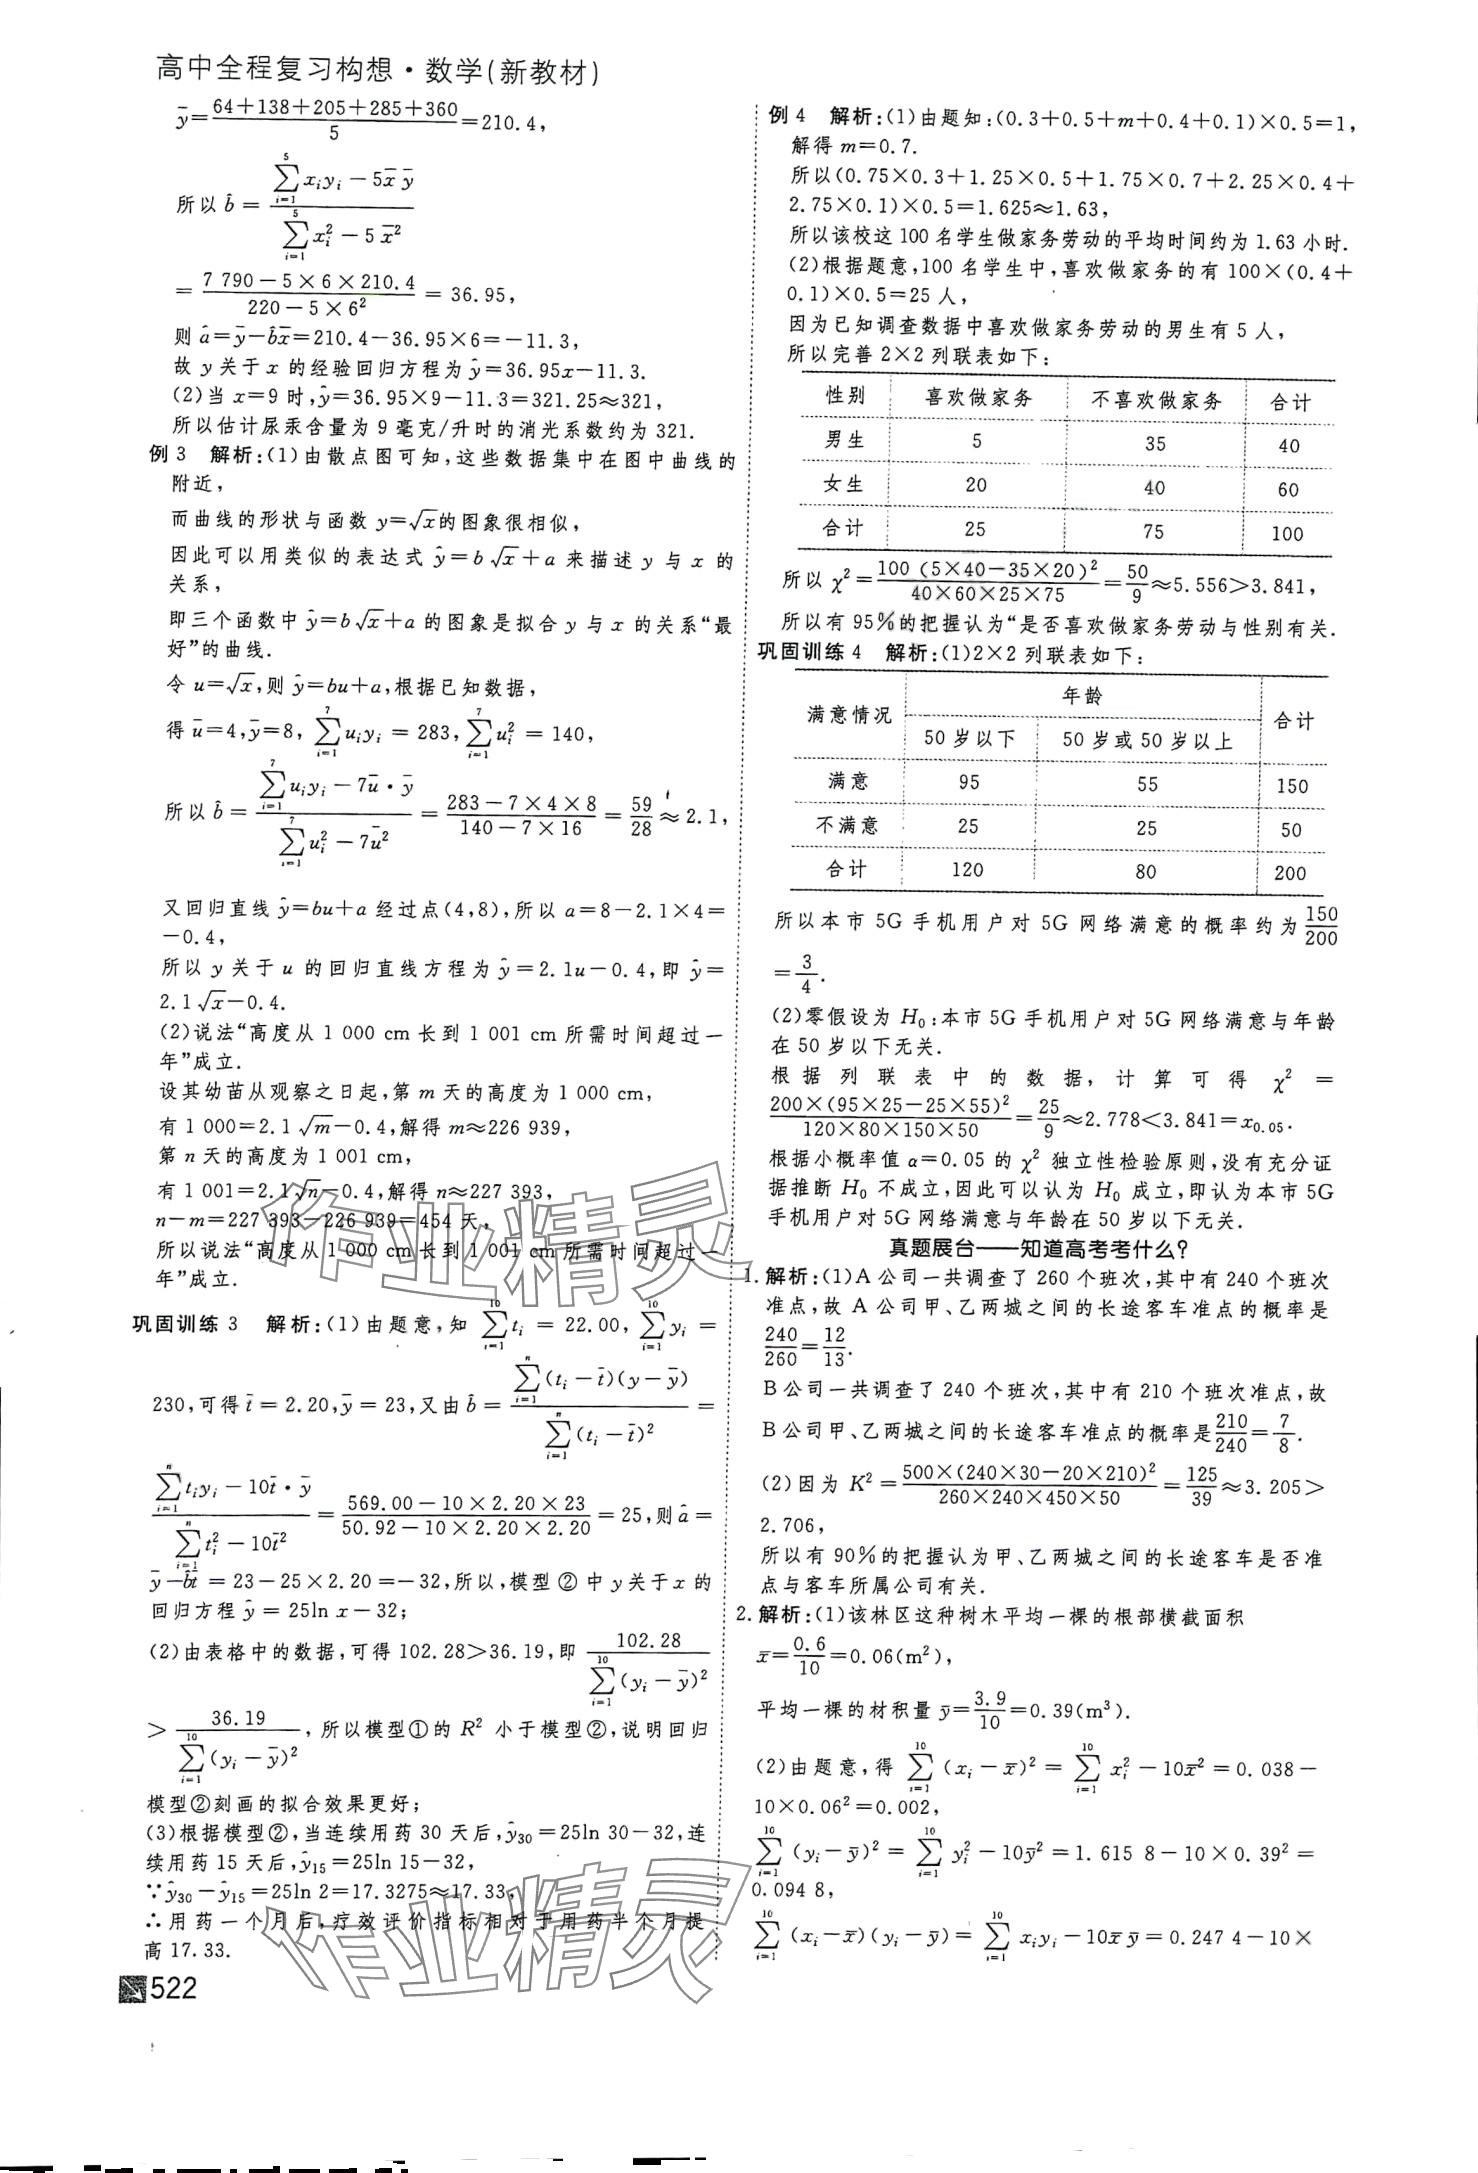 高中全程复习构想·数学(新教材)
ȳ=(64+138+205+285+360)/5=210.4,
所以 b̂ = (∑_{i=1}^{5} x_i y_i − 5x̄ ȳ)/(∑_{i=1}^{5} x_i² − 5x̄²)
= (7 790−5×6×210.4)/(220−5×6²) = 36.95,
则 â=ȳ−b̂x̄=210.4−36.95×6=−11.3,
故 y 关于 x 的经验回归方程为 ŷ=36.95x−11.3.
(2)当 x=9 时,ŷ=36.95×9−11.3=321.25≈321,
所以估计尿汞含量为 9 毫克/升时的消光系数约为 321.
例 3 解析:(1)由散点图可知,这些数据集中在图中曲线的
附近,
而曲线的形状与函数 y=√x的图象很相似,
因此可以用类似的表达式 ŷ=b√x+a 来描述 y 与 x 的
关系,
即三个函数中 ŷ=b√x+a 的图象是拟合 y 与 x 的关系“最
好”的曲线.
令 u=√x,则 ŷ=bu+a,根据已知数据,
得 ū=4,ȳ=8, ∑_{i=1}^{7} u_i y_i = 283, ∑_{i=1}^{7} u_i² = 140,
所以 b̂ = (∑_{i=1}^{7} u_i y_i − 7ū·ȳ)/(∑_{i=1}^{7} u_i² − 7ū²) = (283−7×4×8)/(140−7×16) = 59/28 ≈2.1,
又回归直线 ŷ=bu+a 经过点(4,8),所以 a=8−2.1×4=
−0.4,
所以 y 关于 u 的回归直线方程为 ŷ=2.1u−0.4,即 ŷ=
2.1√x−0.4.
(2)说法“高度从 1 000 cm 长到 1 001 cm 所需时间超过一
年”成立.
设其幼苗从观察之日起,第 m 天的高度为 1 000 cm,
有 1 000=2.1√m−0.4,解得 m≈226 939,
第 n 天的高度为 1 001 cm,
有 1 001=2.1√n−0.4,解得 n≈227 393,
n−m=227 393−226 939=454 天,
所以说法“高度从 1 000 cm 长到 1 001 cm 所需时间超过一
年”成立.
巩固训练 3 解析:(1)由题意,知 ∑_{i=1}^{10} t_i = 22.00, ∑_{i=1}^{10} y_i =
230,可得 t̄=2.20,ȳ=23,又由 b̂= (∑_{i=1}^{n}(t_i−t̄)(y−ȳ))/(∑_{i=1}^{n}(t_i−t̄)²) =
(∑_{i=1}^{n} t_i y_i − 10t̄·ȳ)/(∑_{i=1}^{n} t_i² − 10t̄²) = (569.00−10×2.20×23)/(50.92−10×2.20×2.20) = 25,则 â=
ȳ−b̂t̄ = 23−25×2.20=−32,所以,模型 ② 中 y关于 x 的
回归方程 ŷ=25ln x−32;
(2)由表格中的数据,可得 102.28>36.19,即 102.28/∑_{i=1}^{10}(y_i−ȳ)²
> 36.19/∑_{i=1}^{10}(y_i−ȳ)²,所以模型①的 R² 小于模型②,说明回归
模型②刻画的拟合效果更好;
(3)根据模型②,当连续用药 30 天后,ŷ₃₀=25ln 30−32,连
续用药 15 天后,ŷ₁₅=25ln 15−32,
∵ŷ₃₀−ŷ₁₅=25ln 2=17.3275≈17.33,
∴用药一个月后,疗效评价指标相对于用药半个月提
高 17.33.
522
例 4 解析:(1)由题知:(0.3+0.5+m+0.4+0.1)×0.5=1,
解得 m=0.7.
所以(0.75×0.3+1.25×0.5+1.75×0.7+2.25×0.4+
2.75×0.1)×0.5=1.625≈1.63,
所以该校这 100 名学生做家务劳动的平均时间约为 1.63 小时.
(2)根据题意,100 名学生中,喜欢做家务的有 100×(0.4+
0.1)×0.5=25 人,
因为已知调查数据中喜欢做家务劳动的男生有 5 人,
所以完善 2×2 列联表如下:
性别 喜欢做家务 不喜欢做家务 合计
男生 5 35 40
女生 20 40 60
合计 25 75 100
所以 χ²=100(5×40−35×20)²/(40×60×25×75)=50/9≈5.556>3.841,
所以有 95%的把握认为“是否喜欢做家务劳动与性别有关.
巩固训练 4 解析:(1)2×2 列联表如下:
满意情况 年龄 合计
50 岁以下 50 岁或 50 岁以上
满意 95 55 150
不满意 25 25 50
合计 120 80 200
所以本市 5G 手机用户对 5G 网络满意的概率约为 150/200
=3/4.
(2)零假设为 H₀:本市 5G 手机用户对 5G 网络满意与年龄
在 50 岁以下无关.
根据列联表中的数据,计算可得 χ² =
200×(95×25−25×55)²/(120×80×150×50)=25/9≈2.778<3.841=x₀.₀₅.
根据小概率值 α=0.05 的 χ² 独立性检验原则,没有充分证
据推断 H₀ 不成立,因此可以认为 H₀ 成立,即认为本市 5G
手机用户对 5G 网络满意与年龄在 50 岁以下无关.
真题展台——知道高考考什么?
1.解析:(1)A 公司一共调查了 260 个班次,其中有 240 个班次
准点,故 A 公司甲、乙两城之间的长途客车准点的概率是
240/260=12/13.
B 公司一共调查了 240 个班次,其中有 210 个班次准点,故
B 公司甲、乙两城之间的长途客车准点的概率是210/240=7/8.
(2)因为 K²=500×(240×30−20×210)²/(260×240×450×50)=125/39≈3.205>
2.706,
所以有 90%的把握认为甲、乙两城之间的长途客车是否准
点与客车所属公司有关.
2.解析:(1)该林区这种树木平均一棵的根部横截面积
x̄=0.6/10=0.06(m²),
平均一棵的材积量 ȳ=3.9/10=0.39(m³).
(2)由题意,得 ∑_{i=1}^{10}(x_i−x̄)² = ∑_{i=1}^{10} x_i²−10x̄²=0.038−
10×0.06²=0.002,
∑_{i=1}^{10}(y_i−ȳ)² = ∑_{i=1}^{10} y_i²−10ȳ²=1.615 8−10×0.39²=
0.094 8,
∑_{i=1}^{10}(x_i−x̄)(y_i−ȳ)= ∑_{i=1}^{10} x_i y_i−10x̄ ȳ=0.247 4−10×
作业精灵
作业精灵